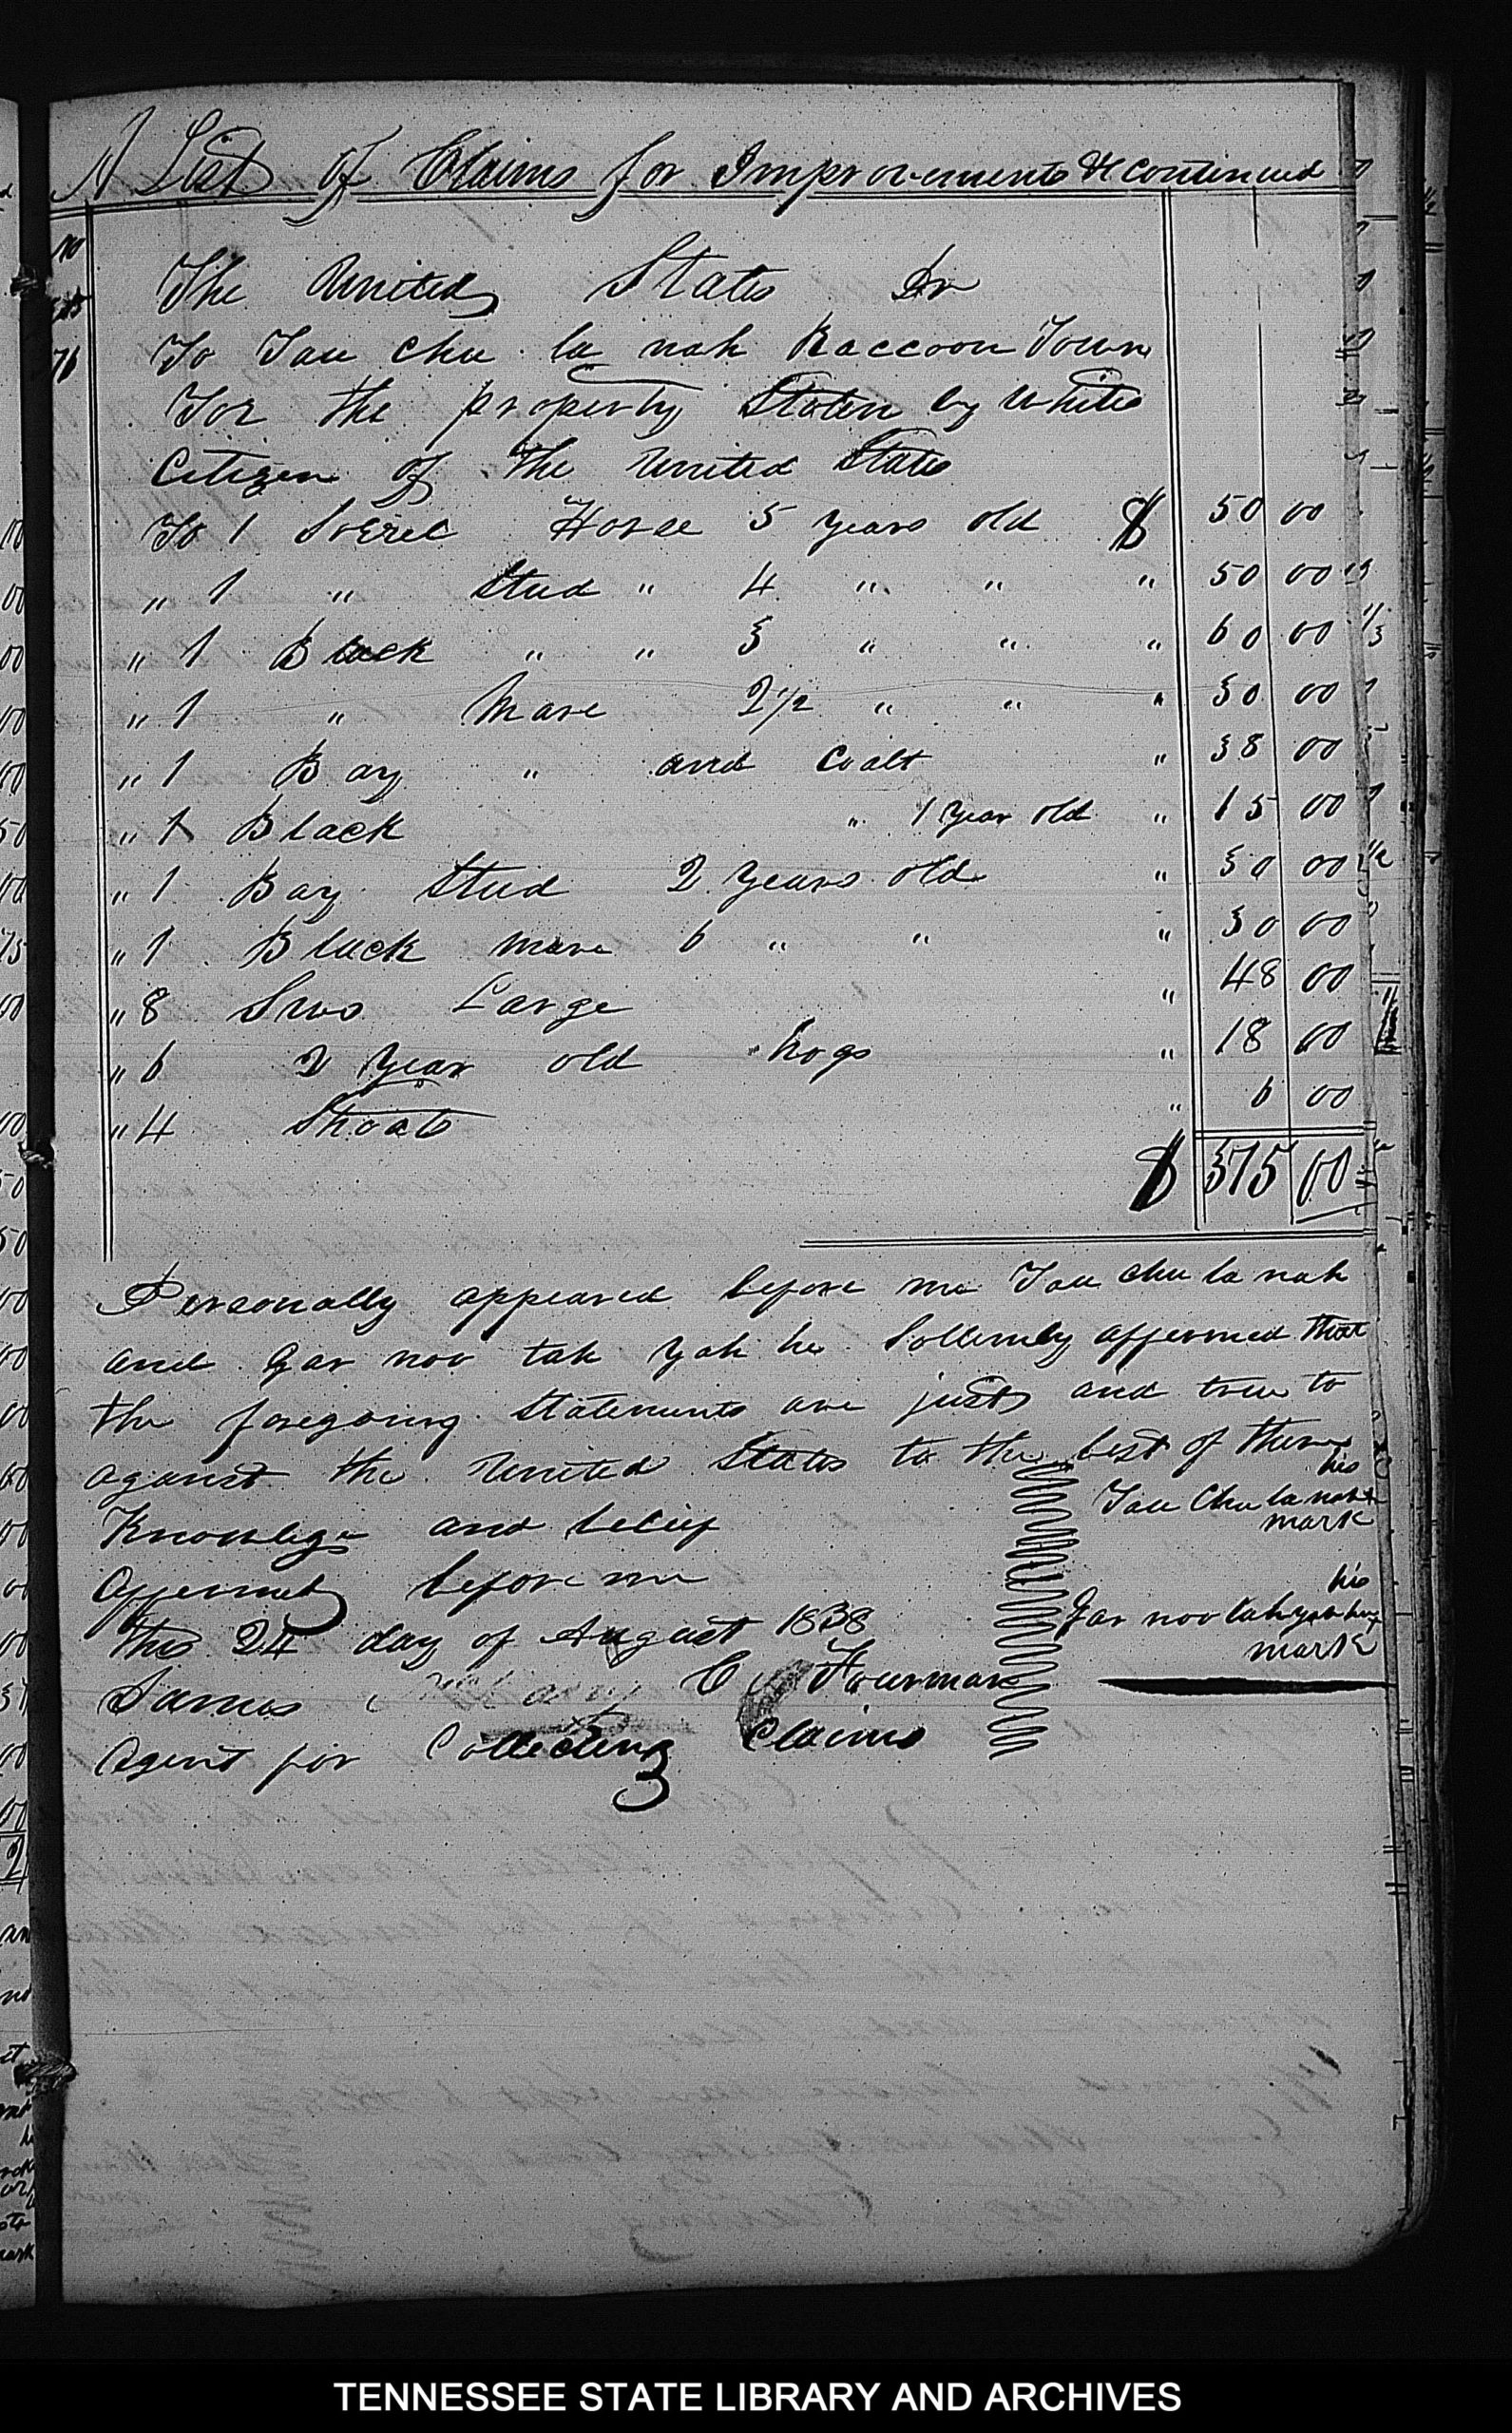 A List of Claims for Improvements &c continued
The United States Dr
To Tau chu la nah Raccoon Town
For the property Stolen by White
Citizen of the United States
To 1 Sorrel Horse 5 years old $ 50 00
" 1 " Stud " 4 " " " 50 00
" 1 Black " " 3 " " " 60 00
" 1 " Mare 2 1/2 " " " 30 00
" 1 Bay " and Coalt " 38 00
" 1 Black " 1 year old " 15 00
" 1 Bay Stud 2 years old " 30 00
" 1 Black mare 6 " " " 30 00
" 8 Sows Large " 48 00
" 6 2 year old hogs " 18 00
" 4 Shoats " 6 00
$ 375 00
Personally appeared before me Tau chu la nah
and Gar noo tah yah he Sollemly affermed that
the foregoing Statements are just and true to
against the United States to the best of there
Knowlege and belief
Affermed before me
this 24 day of August 1838
James Fourman
Agent for Collecting Claims
his
Tau Chu la nah +
mark
his
Gar noo tah yah he +
mark
TENNESSEE STATE LIBRARY AND ARCHIVES